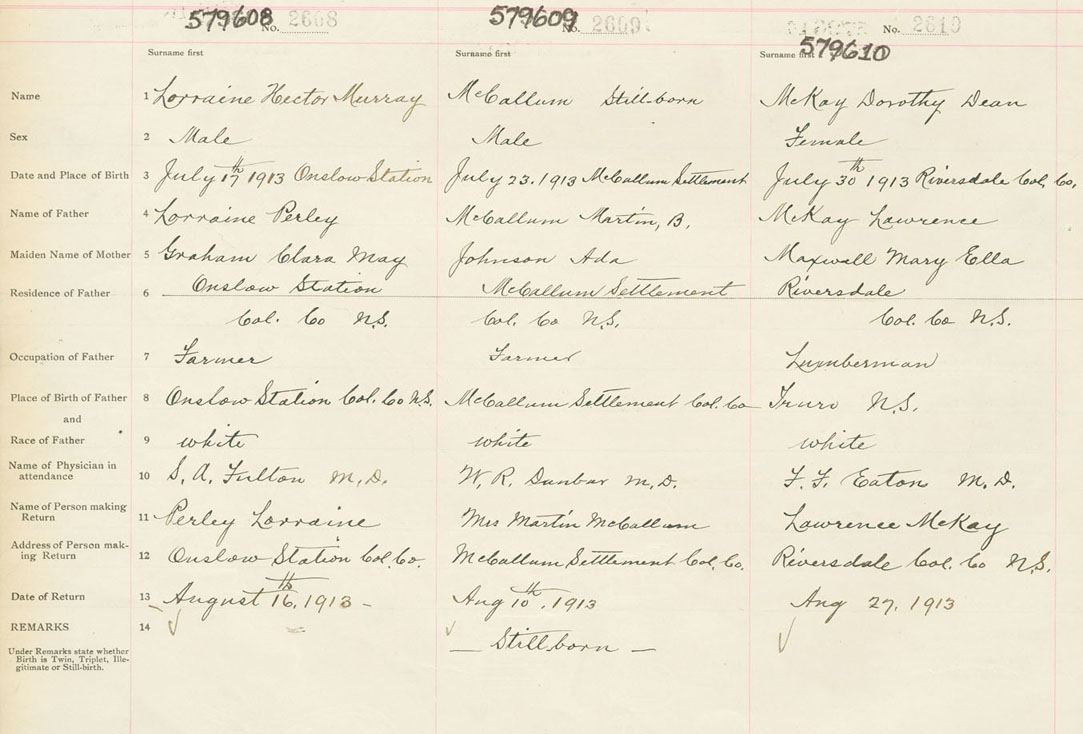 579608 No. 2608 579609 No. 2609 No. 2610
Surname first Surname first Surname first 579610
Name 1 Lorraine Hector Murray McCallum Stillborn McKay Dorothy Dean
Sex 2 Male Male Female
Date and Place of Birth 3 July 17th 1913 Onslow Station July 23. 1913 McCallum Settlement July 30th 1913 Riversdale Col. Co.
Name of Father 4 Lorraine Perley McCallum Martin, B. McKay Lawrence
Maiden Name of Mother 5 Graham Clara May Johnson Ada Maxwell Mary Ella
Residence of Father 6 Onslow Station McCallum Settlement Riversdale
Col. Co N.S. Col. Co N.S. Col. Co N.S.
Occupation of Father 7 Farmer Farmer Lumberman
Place of Birth of Father 8 Onslow Station Col. Co N.S. McCallum Settlement Col. Co Truro N.S.
and
Race of Father 9 white white white
Name of Physician in
attendance 10 S. A. Fulton M.D. W. R. Dunbar M.D. F. F. Eaton M.D.
Name of Person making
Return 11 Perley Lorraine Mrs Martin McCallum Lawrence McKay
Address of Person mak-
ing Return 12 Onslow Station Col. Co. McCallum Settlement Col. Co. Riversdale Col. Co N.S.
Date of Return 13 - August 16th, 1913 - Aug 10th, 1913 Aug 27, 1913
REMARKS 14 — Stillborn —
Under Remarks state whether
Birth is Twin, Triplet, Ille-
gitimate or Still-birth.